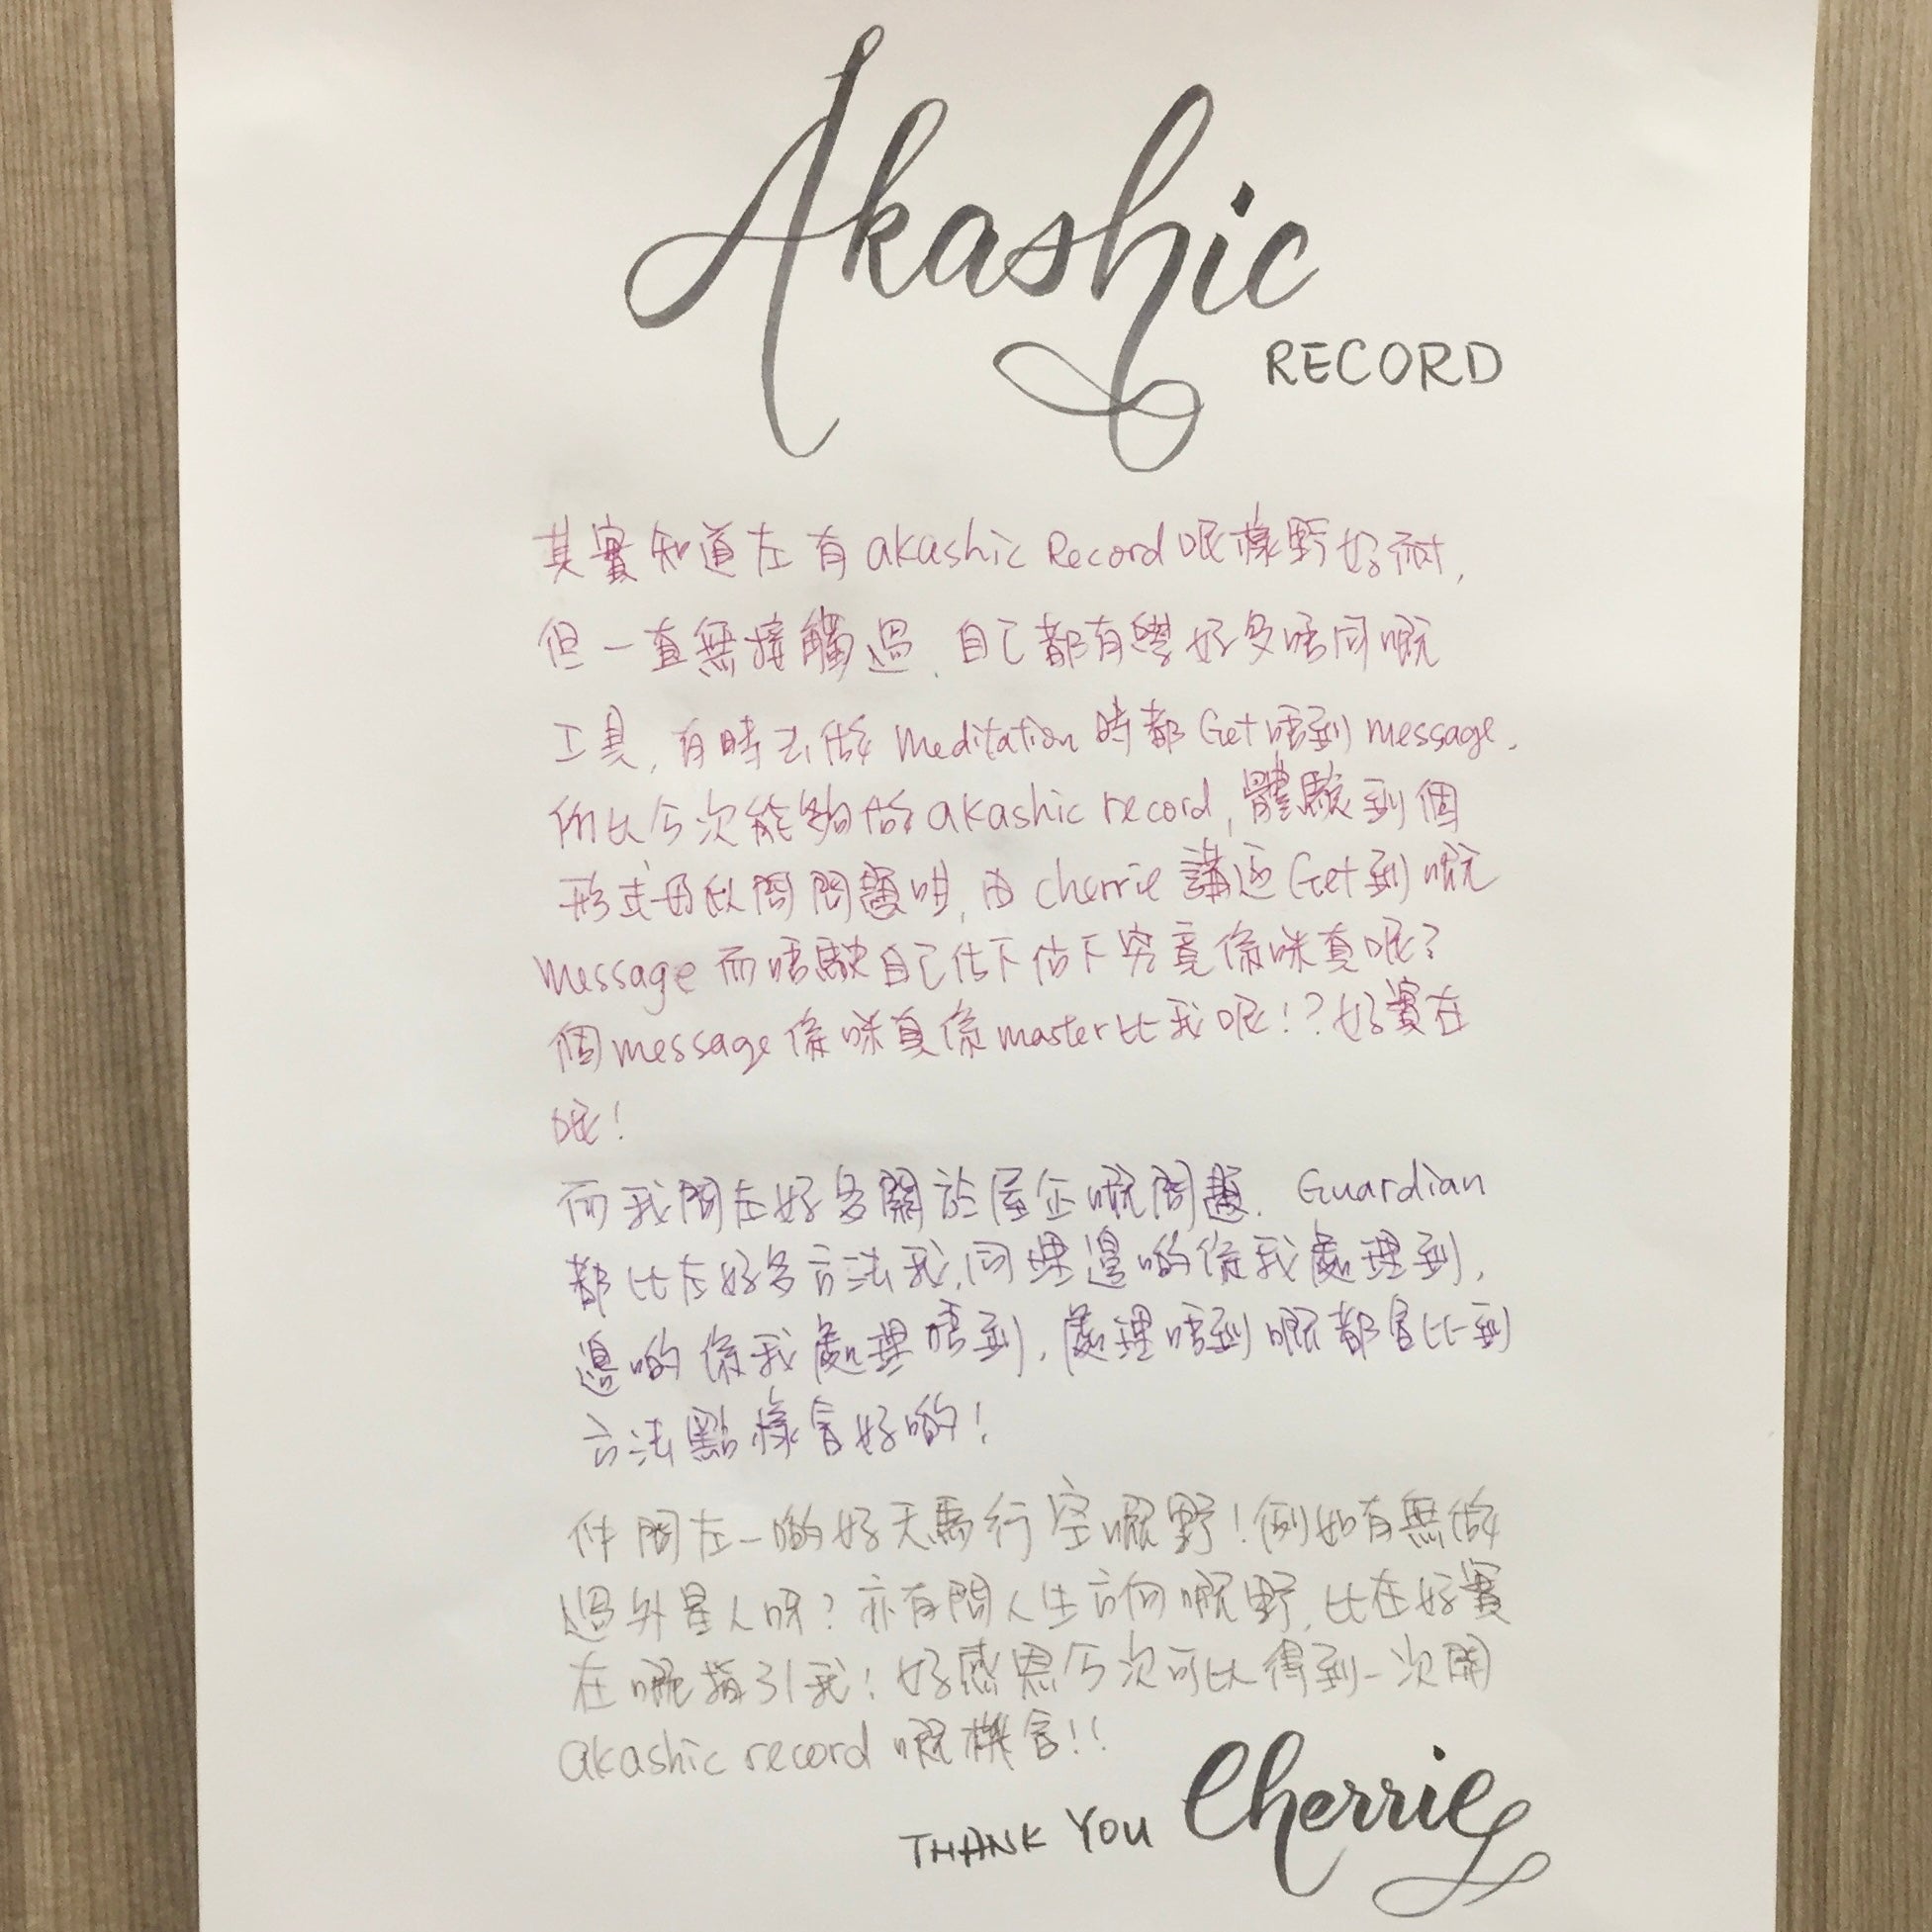 Akashic
RECORD
其實知道左有akashic Record呢樣野好耐,
但一直無接觸過,自己都有學好多唔同嘅
工具,有時去做 meditation 時都 Get唔到 message,
所以今次能夠做akashic record,體驗到個
形式可以問問題咁,由cherrie 講返Get到嘅
message 而唔駛自己估下估下究竟係咪真呢?
個message 係咪真係master比我呢!?好實在
呢!
而我問左好多關於屋企嘅問題. Guardian
都比左好多方法我,同埋邊啲係我處理到,
邊啲係我處理唔到,處理唔到嘅都會比到
方法點樣會好啲!
仲問左一啲好天馬行空嘅野!例如有無做
過外星人呀?亦有問人生方向嘅野,比左好實
在嘅指引我!好感恩今次可以得到一次開
akashic record 嘅機會!!
THANK YOU Cherrie